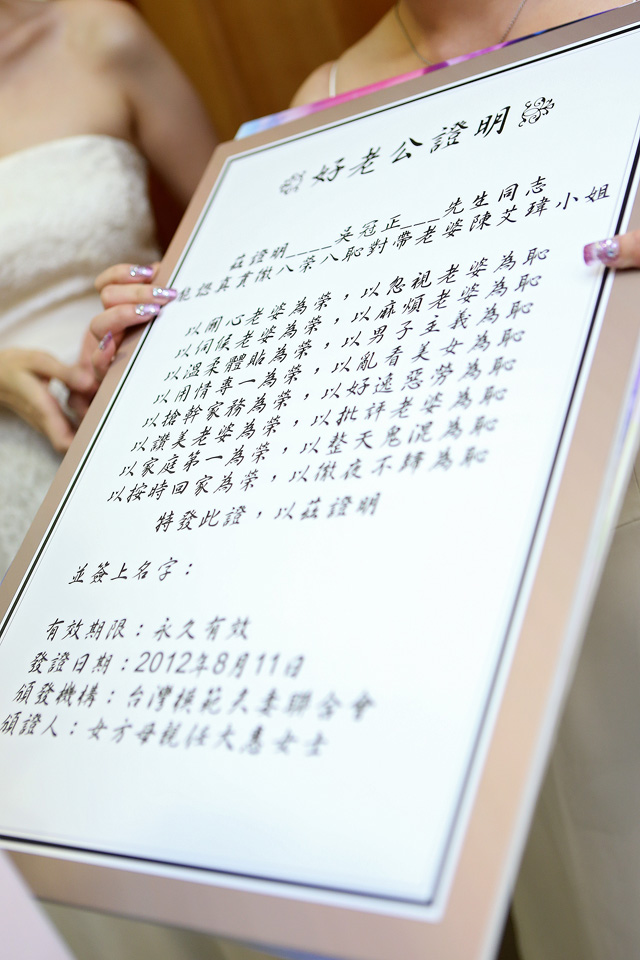 好老公證明
茲證明____吳冠正___先生同志
能認真貫徹八榮八恥對帶老婆陳艾瑋小姐
以開心老婆為榮，以忽視老婆為恥
以伺侯老婆為榮，以麻煩老婆為恥
以溫柔體貼為榮，以男子主義為恥
以用情專一為榮，以亂看美女為恥
以搶幹家務為榮，以好逸惡勞為恥
以讚美老婆為榮，以批評老婆為恥
以家庭第一為榮，以整天鬼混為恥
以按時回家為榮，以徹夜不歸為恥
特發此證，以茲證明
並簽上名字：
有效期限：永久有效
發證日期：2012年8月11日
頒發機構：台灣模範夫妻聯合會
頒證人：女方母親任大惠女士